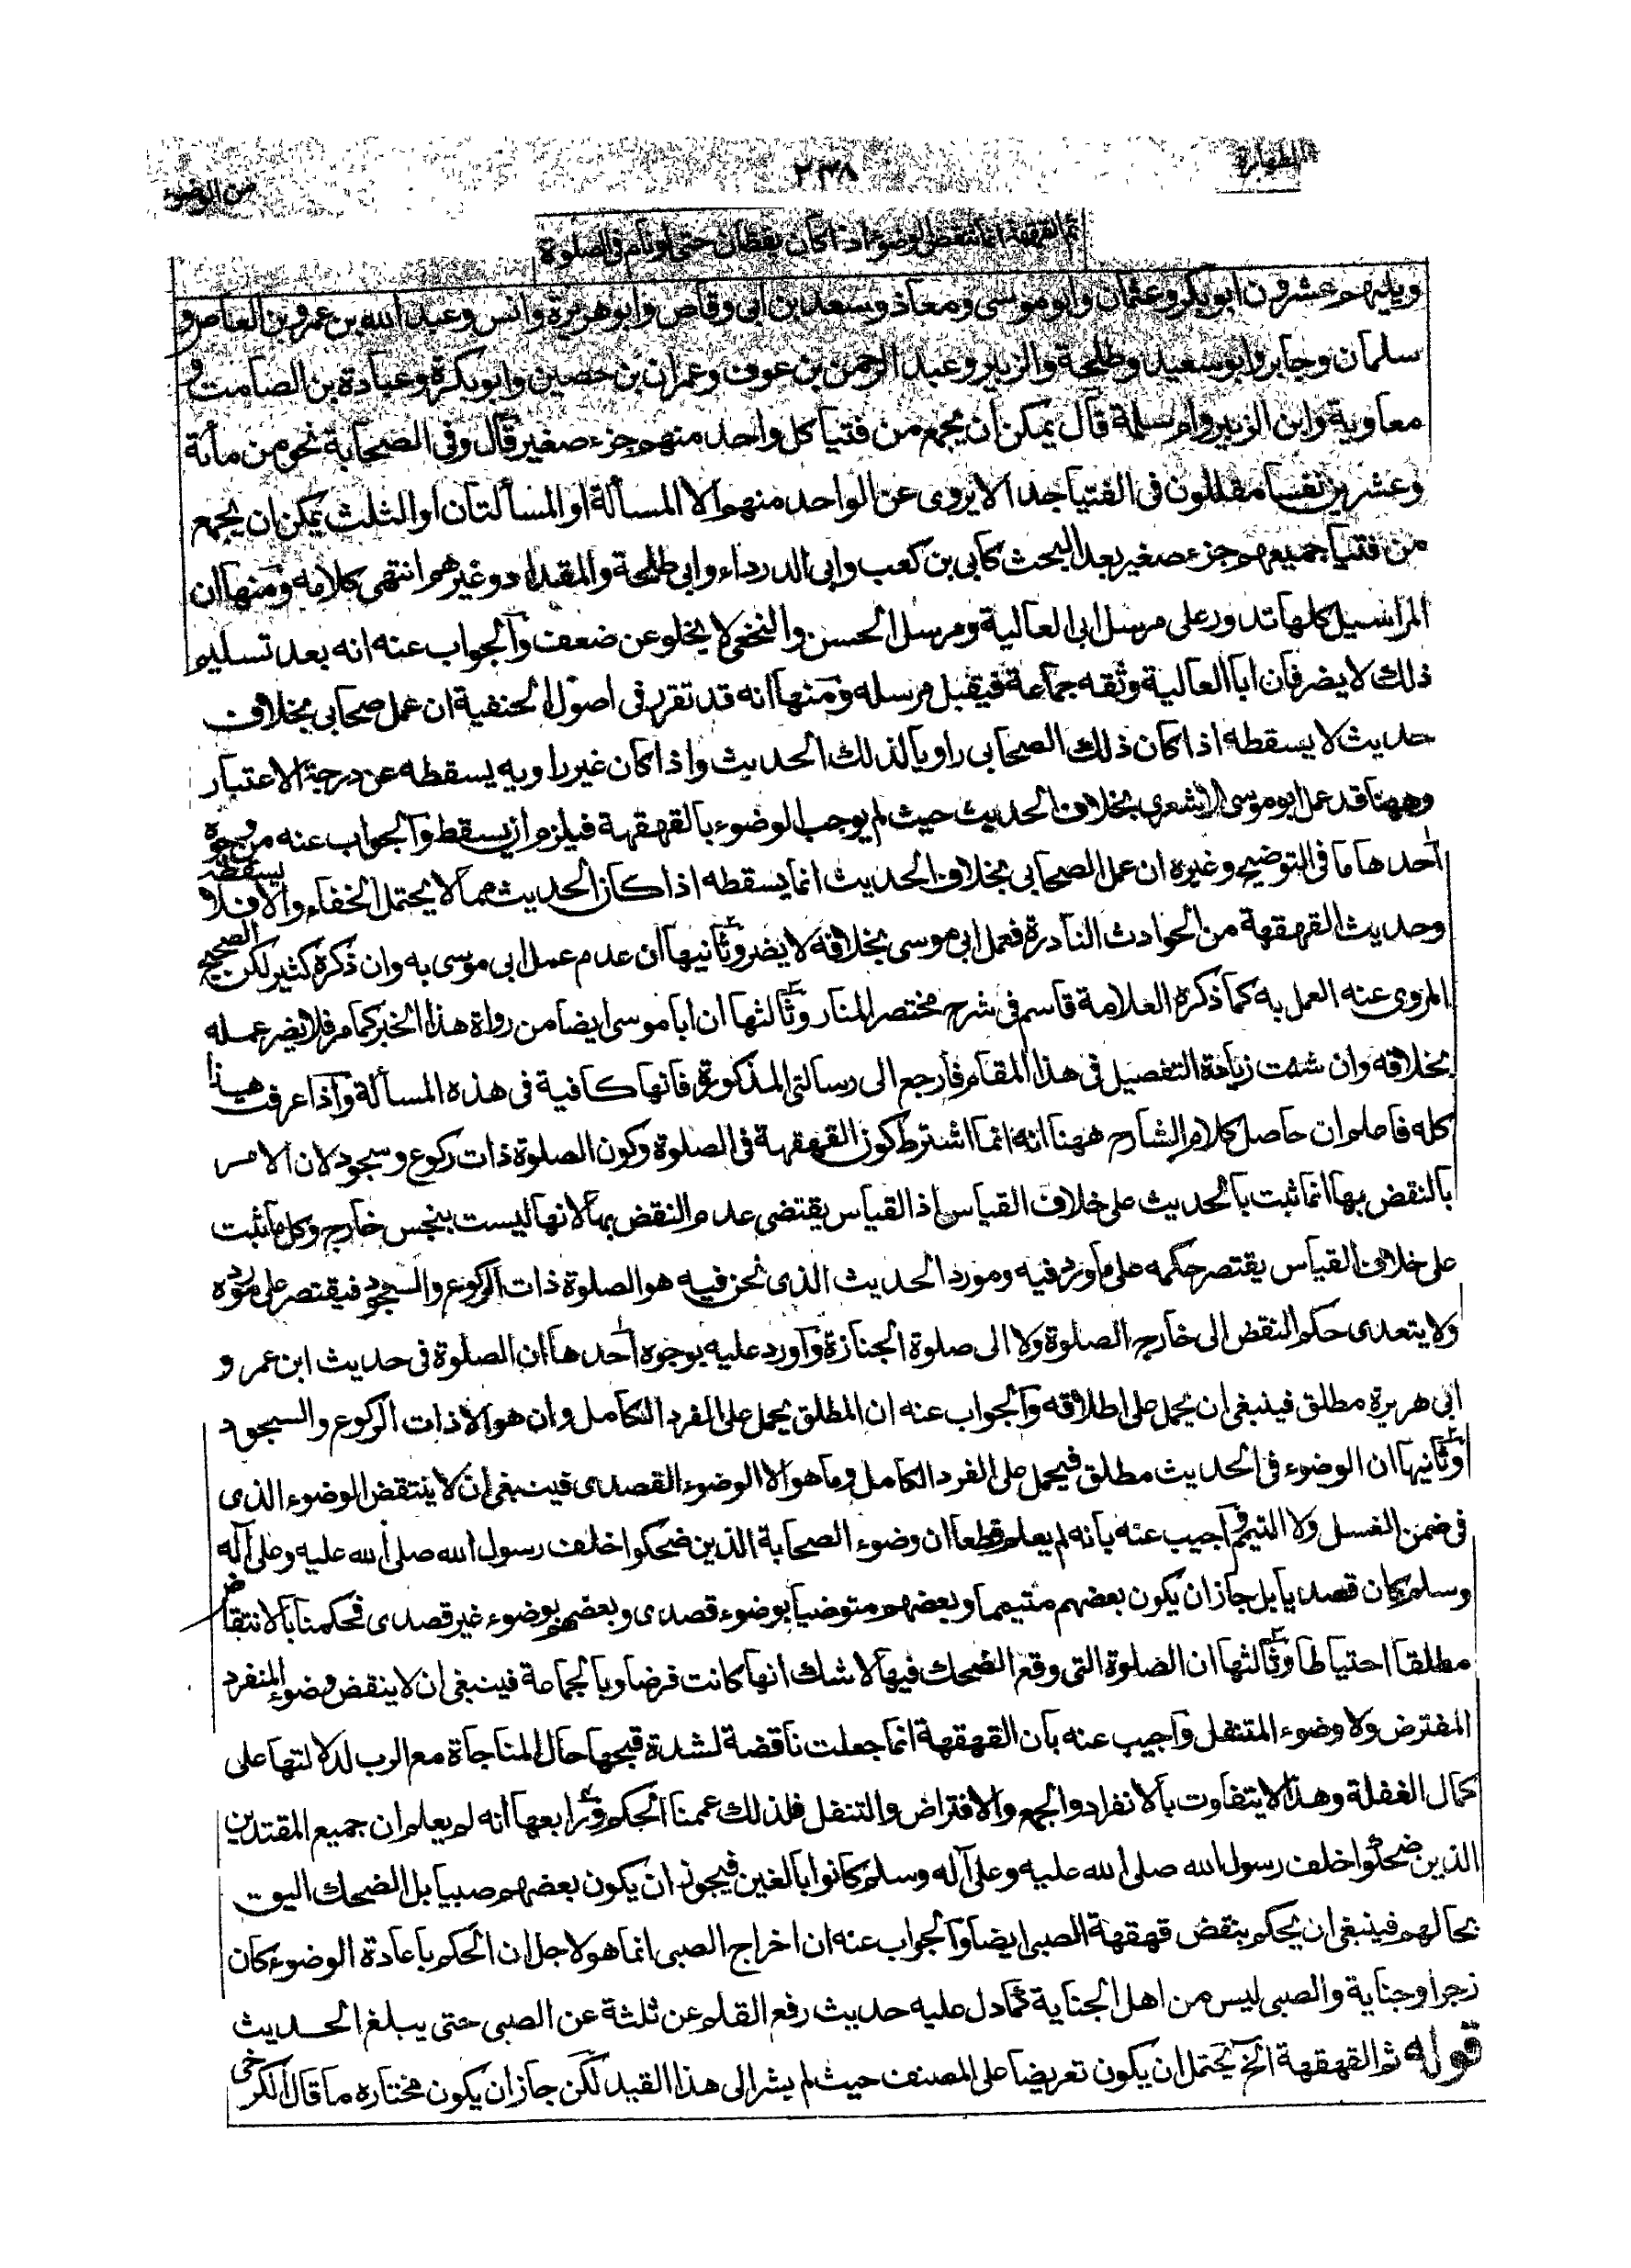 الطهارة
٢٣٨
من الوضوء
ثم القهقهة انما تنقض الوضوء اذا كان يقظان حتى لو نام فى الصلوة
ويليهم عشرون ابو بكر وعثمان وابو موسى ومعاذ وسعد بن ابى وقاص وابو هريرة وانس وعبد الله بن عمرو بن العاص و
سلمان وجابر وابو سعيد وطلحة والزبير وعبد الرحمن بن عوف وعمران بن حصين وابو بكرة وعبادة بن الصامت و
معاوية وابن الزبير وام سلمة قال يمكن أن يجمع من فتيا كل واحد منهم جزء صغير قال وفى الصحابة نحو من مأئة
وعشرين نفسا مقللون فى الفتيا جدا لا يروى عن الواحد منهم الا المسألة او المسألتان او الثلث يمكن ان يجمع
من فتيا جميعهم جزء صغير بعد البحث كابى بن كعب وابى الدرداء وابى طلحة والمقداد وغيرهم انتهى كلامه ومنها ان
المراسيل كلها تدور على مرسل ابى العالية ومرسل الحسن والنخعى لا يخلو عن ضعف والجواب عنه انه بعد تسليم
ذلك لا يضر فان ابا العالية وثقه جماعة فيقبل مرسله ومنها انه قد تقرر فى اصول الحنفية ان عمل صحابى بخلاف
حديث لا يسقطه اذا كان ذلك الصحابى راويا لذلك الحديث واذا كان غير راويه يسقطه عن درجة الاعتبار
وههنا قد عمل ابو موسى الاشعرى بخلاف الحديث حيث لم يوجب الوضوء بالقهقهة فيلزم ان يسقط والجواب عنه من وجوه
احدها ما فى التوضيح وغيره ان عمل الصحابى بخلاف الحديث انما يسقطه اذا كان الحديث مما لا يحتمل الخفاء والا فلا يسقطه
وحديث القهقهة من الحوادث النادرة فعمل ابى موسى بخلافه لا يضر وثانيها ان عدم عمل ابى موسى به وان ذكره كثير لكن الصحيح
المروى عنه العمل به كما ذكره العلامة قاسم فى شرح مختصر المنار وثالثها ان ابا موسى ايضا من رواة هذا الخبر كما مر فلا يضر عمله
بخلافه وان شئت زيادة التفصيل فى هذا المقام فارجع الى رسالتى المذكورة فانها كافية فى هذه المسألة واذا عرفت هذا
كله فاعلم ان حاصل كلام الشارح ههنا انه انما اشترط كون القهقهة فى الصلوة وكون الصلوة ذات ركوع وسجود لان الامر
بالنقض بها انما ثبت بالحديث على خلاف القياس اذ القياس يقتضى عدم النقض بها لانها ليست بنجس خارج وكل ما ثبت
على خلاف القياس يقتصر حكمه على ما ورد فيه ومورد الحديث الذى نحن فيه هو الصلوة ذات الركوع والسجود فيقتصر على مورده
ولا يتعدى حكم النقض الى خارج الصلوة ولا الى صلوة الجنازة واورد عليه بوجوه احدها ان الصلوة فى حديث ابن عمر و
ابى هريرة مطلق فينبغى ان يحمل على اطلاقه والجواب عنه ان المطلق يحمل على الفرد الكامل وان هو الا ذات الركوع والسجود
وثانيها ان الوضوء فى الحديث مطلق فيحمل على الفرد الكامل وما هو الا الوضوء القصدى فينبغى ان لا ينتقض الوضوء الذى
فى ضمن الغسل ولا التيمم واجيب عنه بانه لم يعلم قطعا ان وضوء الصحابة الذين ضحكوا خلف رسول الله صلى الله عليه وعلى آله
وسلم كان قصديا بل جاز ان يكون بعضهم متيمما وبعضهم متوضيا بوضوء قصدى وبعضهم بوضوء غير قصدى فحكمنا بالانتقاض
مطلقا احتياطا وثالثها ان الصلوة التى وقع الضحك فيها لا شك انها كانت فرضا وبالجماعة فينبغى ان لا ينقض وضوء المنفرد
المفترض ولا وضوء المتنفل واجيب عنه بان القهقهة انما جعلت ناقضة لشدة قبحها حال المناجاة مع الرب لدلالتها على
كمال الغفلة وهذا لا يتفاوت بالانفراد والجمع والافتراض والتنفل فلذلك عممنا الحكم ورابعها انه لم يعلم ان جميع المقتدين
الذين ضحكوا خلف رسول الله صلى الله عليه وعلى آله وسلم كانوا بالغين فيجوز ان يكون بعضهم صبيا بل الضحك اليق
بحالهم فينبغى ان يحكم بنقض قهقهة الصبى ايضا والجواب عنه ان اخراج الصبى انما هو لاجل ان الحكم باعادة الوضوء كان
زجرا وجناية والصبى ليس من اهل الجناية كما دل عليه حديث رفع القلم عن ثلثة عن الصبى حتى يبلغ الحديث
قوله ثم القهقهة الخ يحتمل ان يكون تعريضا على المصنف حيث لم يشر الى هذا القيد لكن جاز ان يكون مختاره ما قال الكرخى